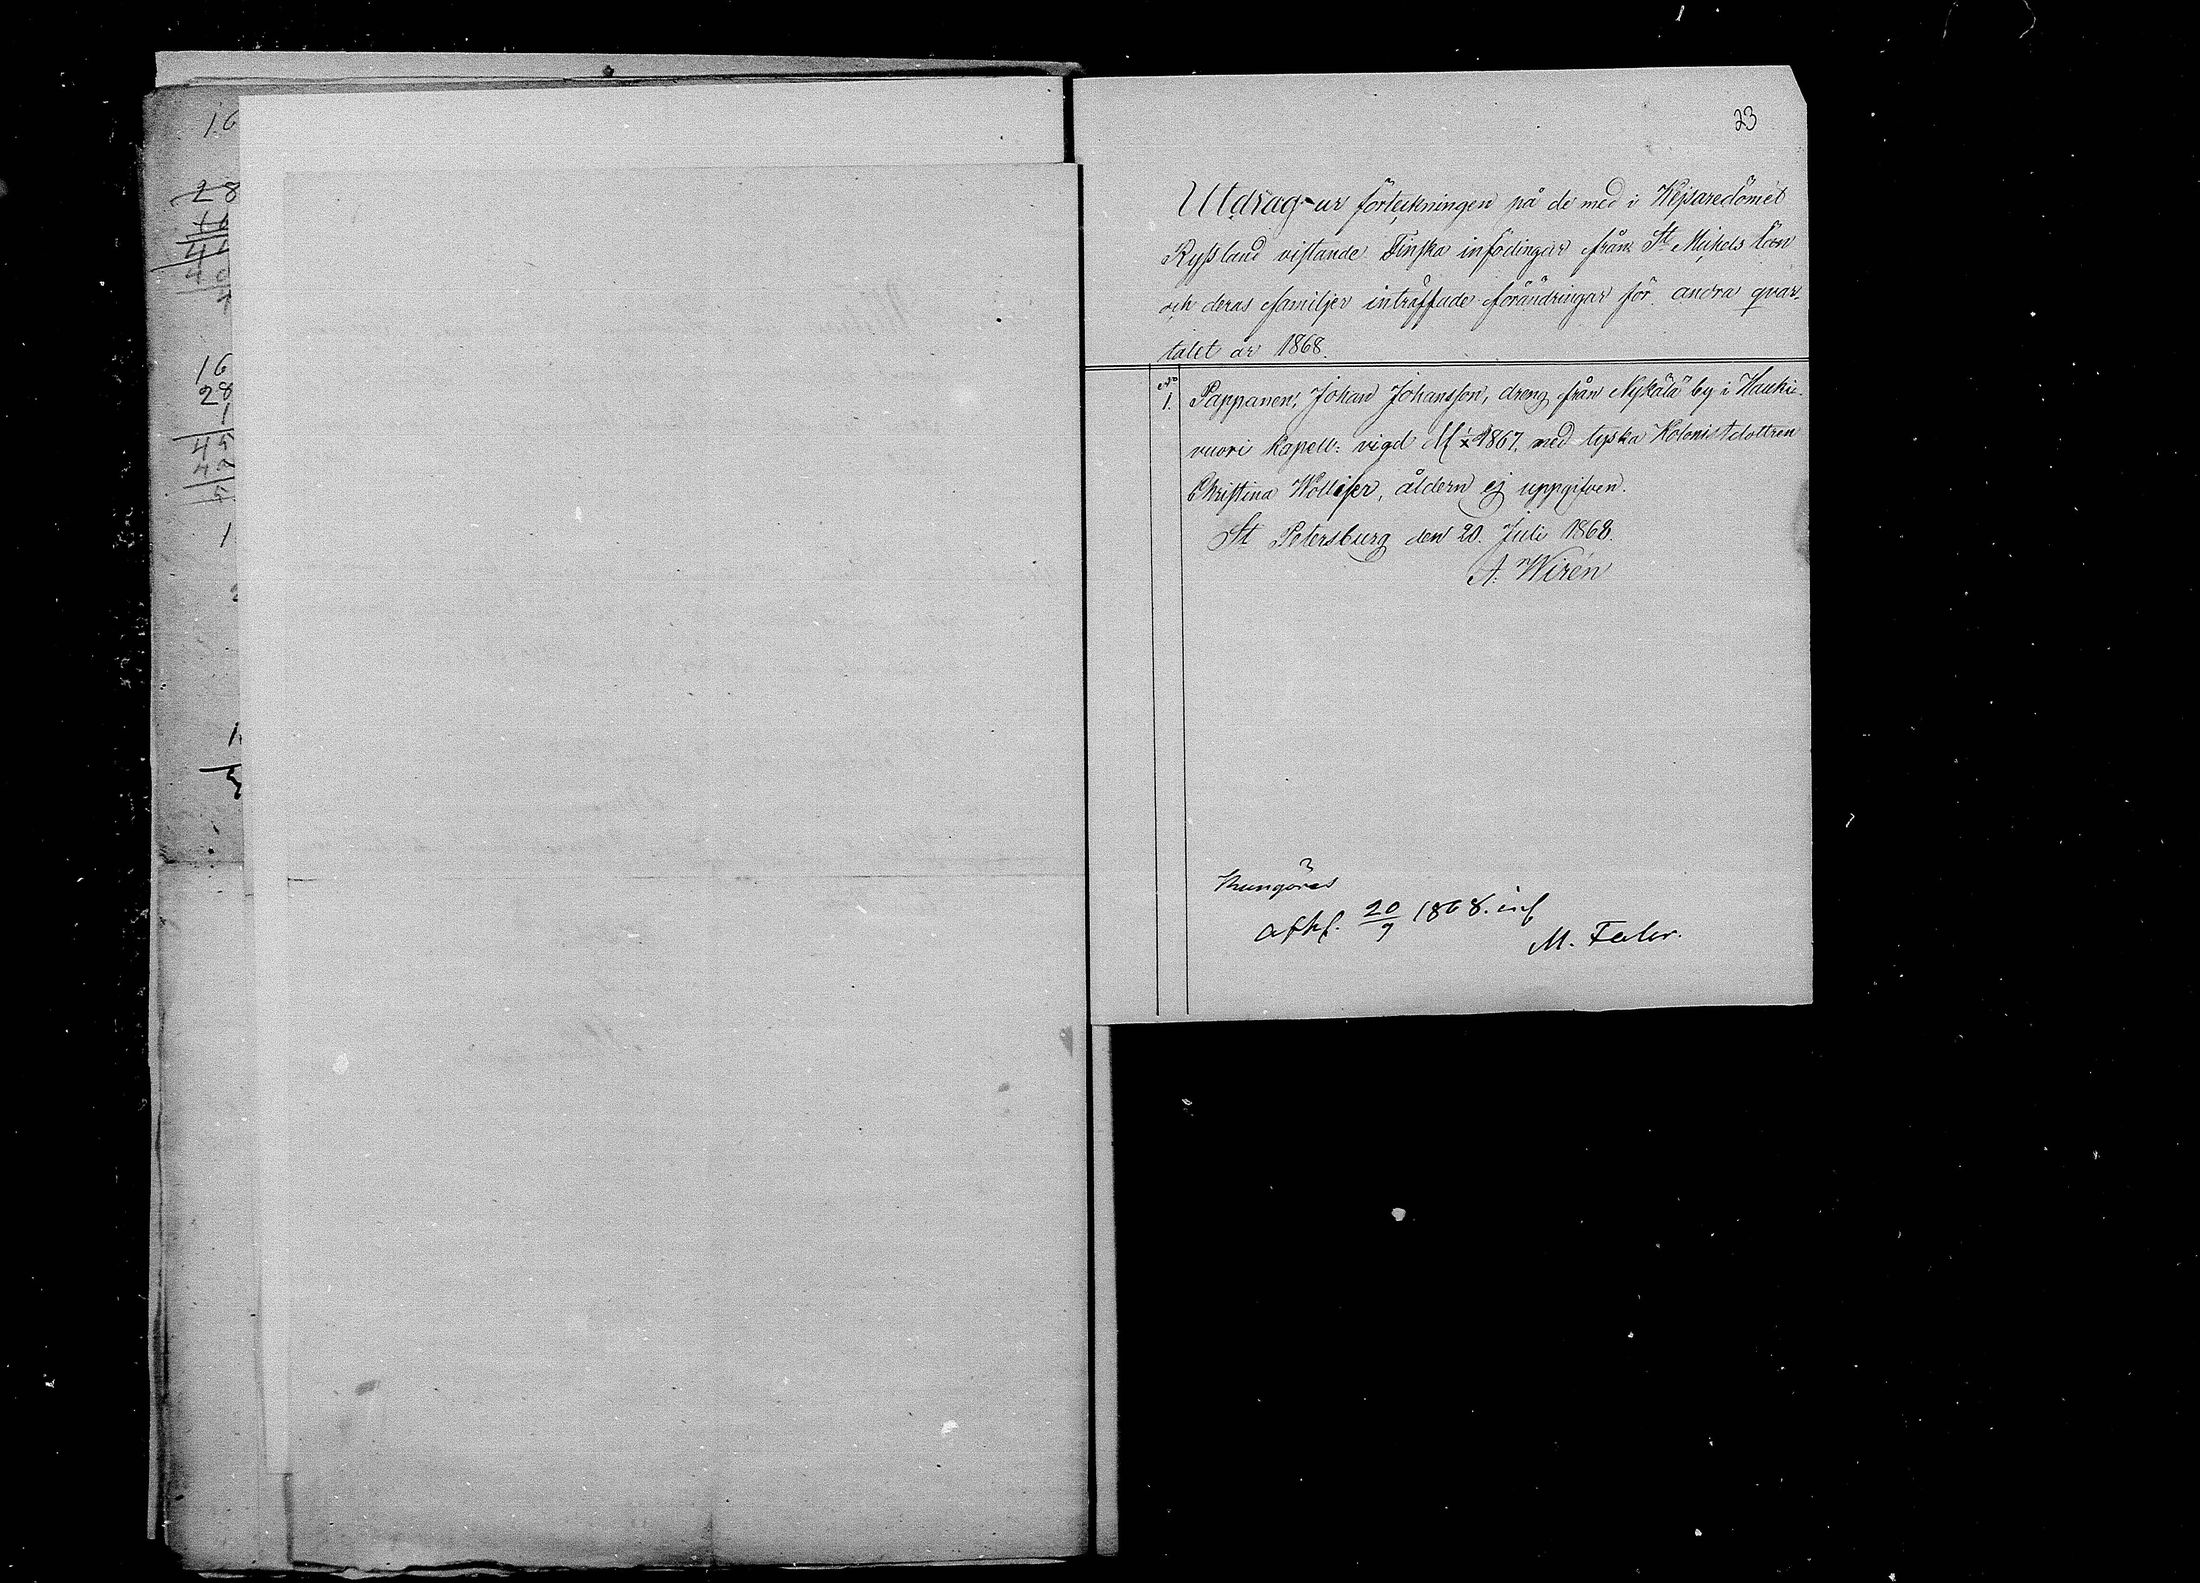 16
28
16
28
1
45
1
23
Utdrag ur förteckningen på de med i Kejsaredömet
Ryssland vistande Finska infödingar från St Michels län
och deras familjer inträffade förändringar för andra qvar-
talet år 1868.
No
1. Pappanen, Johan Johansson, dreng från Nykälä by i Hauki-
vuori kapell: vigd 1867, med tyska Kolonistdottren
Christina Welliser, åldern ej uppgifven.
St Petersburg den 20. Juli 1868.
A. Wirén
Kungöres
afkf. 20/9 1868. inf
M. Faler.